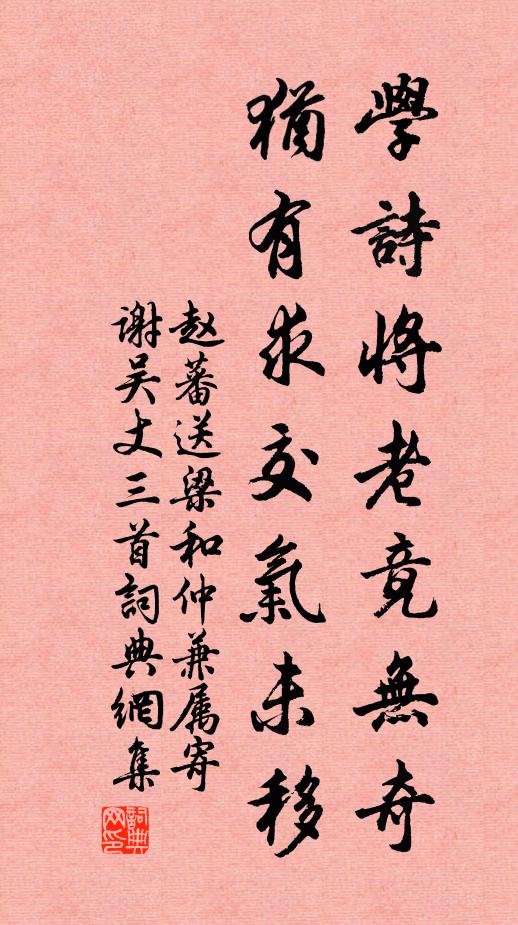 學詩將老竟無奇
猶有求交氣未移
赵蕃送梁和仲兼属寄
谢吴丈三首詞典網集
詞典网印